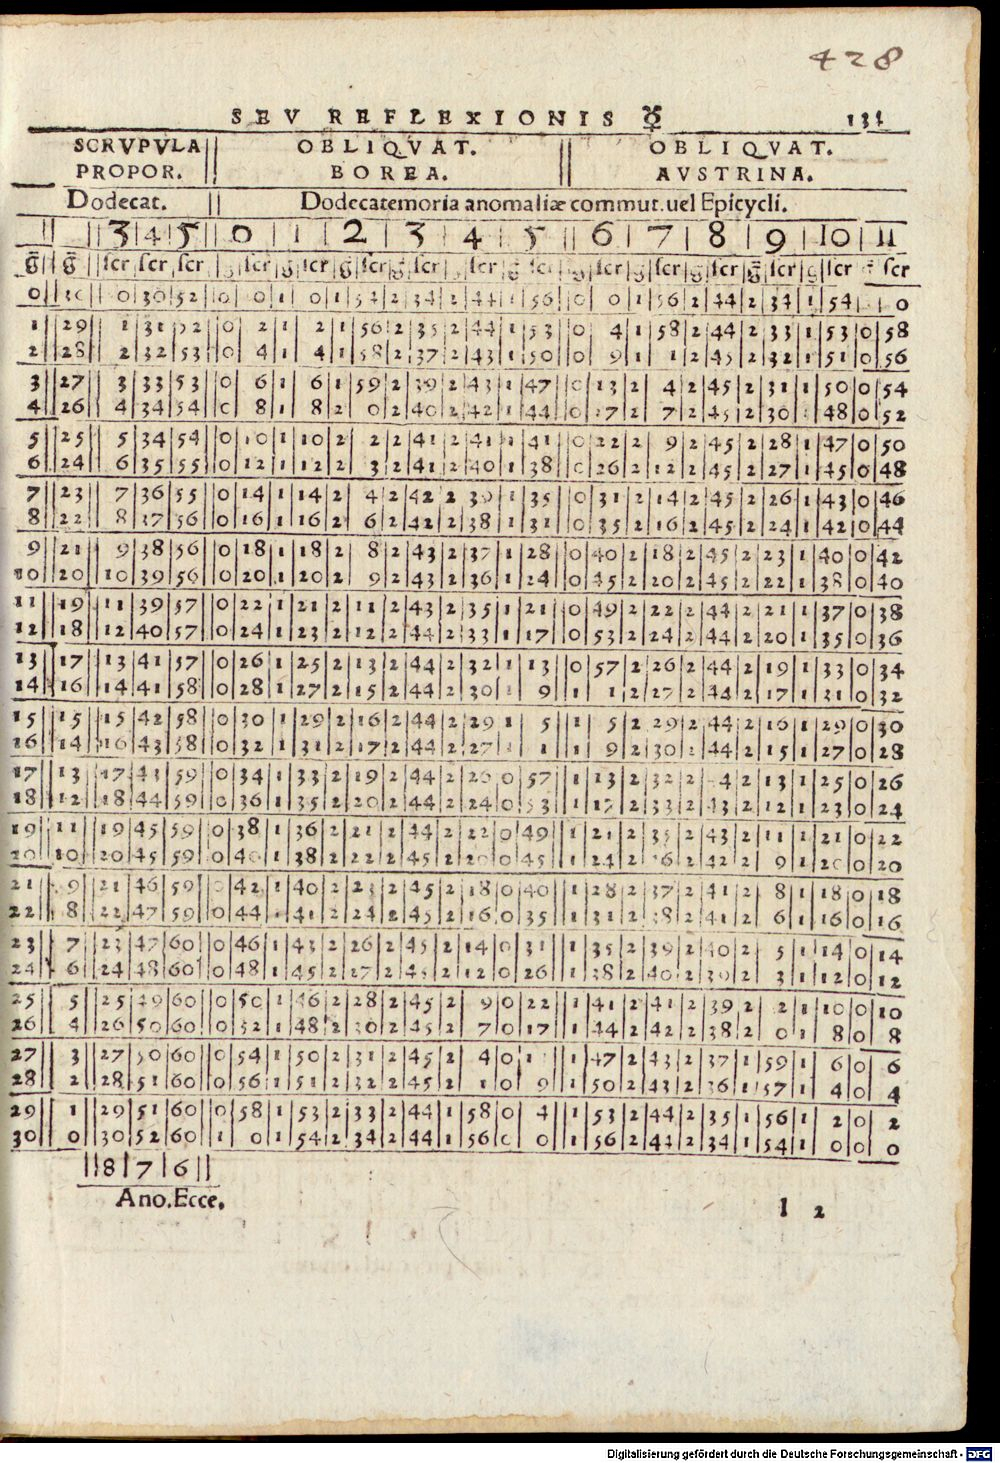 428
SEV REFLEXIONIS ☿ 131
SCRVPVLA || OBLIQVAT. || OBLIQVAT.
PROPOR. || BOREA. || AVSTRINA.
Dodecat. || Dodecatemoria anomaliæ commut. uel Epicycli.
|| || 3 | 4 | 5 || 0 | 1 | 2 | 3 | 4 | 5 || 6 | 7 | 8 | 9 | 10 | 11
g̅ || g̅ || ſcr | ſcr | ſcr || g | ſcr | g | ſcr | g | ſcr | g | ſcr | g | ſcr | g | ſcr || g | ſcr | g | ſcr | g | ſcr | g̅ | ſcr | g | ſcr | g | ſcr
0 || 30 || 0 | 30 | 52 || 0 | 0 | 1 | 0 | 1 | 54 | 2 | 34 | 2 | 44 | 1 | 56 || 0 | 0 | 1 | 56 | 2 | 44 | 2 | 34 | 1 | 54 | 1 | 0
1 || 29 || 1 | 31 | 52 || 0 | 2 | 1 | 2 | 1 | 56 | 2 | 35 | 2 | 44 | 1 | 53 || 0 | 4 | 1 | 58 | 2 | 44 | 2 | 33 | 1 | 53 | 0 | 58
2 || 28 || 2 | 32 | 53 || 0 | 4 | 1 | 4 | 1 | 58 | 2 | 37 | 2 | 43 | 1 | 50 || 0 | 9 | 1 | 1 | 2 | 45 | 2 | 32 | 1 | 51 | 0 | 56
3 || 27 || 3 | 33 | 53 || 0 | 6 | 1 | 6 | 1 | 59 | 2 | 39 | 2 | 43 | 1 | 47 || 0 | 13 | 2 | 4 | 2 | 45 | 2 | 31 | 1 | 50 | 0 | 54
4 || 26 || 4 | 34 | 54 || 0 | 8 | 1 | 8 | 2 | 0 | 2 | 40 | 2 | 42 | 1 | 44 || 0 | 17 | 2 | 7 | 2 | 45 | 2 | 30 | 1 | 48 | 0 | 52
5 || 25 || 5 | 34 | 54 || 0 | 10 | 1 | 10 | 2 | 2 | 2 | 41 | 2 | 41 | 1 | 41 || 0 | 22 | 2 | 9 | 2 | 45 | 2 | 28 | 1 | 47 | 0 | 50
6 || 24 || 6 | 35 | 55 || 0 | 12 | 1 | 12 | 2 | 3 | 2 | 41 | 2 | 40 | 1 | 38 || 0 | 26 | 2 | 12 | 2 | 45 | 2 | 27 | 1 | 45 | 0 | 48
7 || 23 || 7 | 36 | 55 || 0 | 14 | 1 | 14 | 2 | 4 | 2 | 42 | 2 | 39 | 1 | 35 || 0 | 31 | 2 | 14 | 2 | 45 | 2 | 26 | 1 | 43 | 0 | 46
8 || 22 || 8 | 37 | 56 || 0 | 16 | 1 | 16 | 2 | 6 | 2 | 42 | 2 | 38 | 1 | 31 || 0 | 35 | 2 | 16 | 2 | 45 | 2 | 24 | 1 | 42 | 0 | 44
9 || 21 || 9 | 38 | 56 || 0 | 18 | 1 | 18 | 2 | 8 | 2 | 43 | 2 | 37 | 1 | 28 || 0 | 40 | 2 | 18 | 2 | 45 | 2 | 23 | 1 | 40 | 0 | 42
10 || 20 || 10 | 39 | 56 || 0 | 20 | 1 | 20 | 2 | 9 | 2 | 43 | 2 | 36 | 1 | 24 || 0 | 45 | 2 | 20 | 2 | 45 | 2 | 22 | 1 | 38 | 0 | 40
11 || 19 || 11 | 39 | 57 || 0 | 22 | 1 | 21 | 2 | 11 | 2 | 43 | 2 | 35 | 1 | 21 || 0 | 49 | 2 | 22 | 2 | 44 | 2 | 21 | 1 | 37 | 0 | 38
12 || 18 || 12 | 40 | 57 || 0 | 24 | 1 | 23 | 2 | 12 | 2 | 44 | 2 | 33 | 1 | 17 || 0 | 53 | 2 | 24 | 2 | 44 | 2 | 20 | 1 | 35 | 0 | 36
13 || 17 || 13 | 41 | 57 || 0 | 26 | 1 | 25 | 2 | 13 | 2 | 44 | 2 | 32 | 1 | 13 || 0 | 57 | 2 | 26 | 2 | 44 | 2 | 19 | 1 | 33 | 0 | 34
14 || 16 || 14 | 41 | 58 || 0 | 28 | 1 | 27 | 2 | 15 | 2 | 44 | 2 | 30 | 1 | 9 || 1 | 1 | 2 | 27 | 2 | 44 | 2 | 17 | 1 | 31 | 0 | 32
15 || 15 || 15 | 42 | 58 || 0 | 30 | 1 | 29 | 2 | 16 | 2 | 44 | 2 | 29 | 1 | 5 || 1 | 5 | 2 | 29 | 2 | 44 | 2 | 16 | 1 | 29 | 0 | 30
16 || 14 || 16 | 43 | 58 || 0 | 32 | 1 | 31 | 2 | 17 | 2 | 44 | 2 | 27 | 1 | 1 || 1 | 9 | 2 | 30 | 2 | 44 | 2 | 15 | 1 | 27 | 0 | 28
17 || 13 || 17 | 43 | 59 || 0 | 34 | 1 | 33 | 2 | 19 | 2 | 44 | 2 | 26 | 0 | 57 || 1 | 13 | 2 | 32 | 2 | 42 | 2 | 13 | 1 | 25 | 0 | 26
18 || 12 || 18 | 44 | 59 || 0 | 36 | 1 | 35 | 2 | 20 | 2 | 44 | 2 | 24 | 0 | 53 || 1 | 17 | 2 | 33 | 2 | 43 | 2 | 12 | 1 | 23 | 0 | 24
19 || 11 || 19 | 45 | 59 || 0 | 38 | 1 | 36 | 2 | 21 | 2 | 44 | 2 | 22 | 0 | 49 || 1 | 21 | 2 | 35 | 2 | 43 | 2 | 11 | 1 | 21 | 0 | 22
20 || 10 || 20 | 45 | 59 || 0 | 40 | 1 | 38 | 2 | 22 | 2 | 45 | 2 | 20 | 0 | 45 || 1 | 24 | 2 | 36 | 2 | 42 | 2 | 9 | 1 | 20 | 0 | 20
21 || 9 || 21 | 46 | 59 || 0 | 42 | 1 | 40 | 2 | 23 | 2 | 45 | 2 | 18 | 0 | 40 || 1 | 28 | 2 | 37 | 2 | 41 | 2 | 8 | 1 | 18 | 0 | 18
22 || 8 || 22 | 47 | 59 || 0 | 44 | 1 | 41 | 2 | 24 | 2 | 45 | 2 | 16 | 0 | 35 || 1 | 31 | 2 | 38 | 2 | 41 | 2 | 6 | 1 | 16 | 0 | 16
23 || 7 || 23 | 47 | 60 || 0 | 46 | 1 | 43 | 2 | 26 | 2 | 45 | 2 | 14 | 0 | 31 || 1 | 35 | 2 | 39 | 2 | 40 | 2 | 5 | 1 | 14 | 0 | 14
24 || 6 || 24 | 48 | 60 || 0 | 48 | 1 | 45 | 2 | 27 | 2 | 45 | 2 | 12 | 0 | 26 || 1 | 38 | 2 | 40 | 2 | 39 | 2 | 3 | 1 | 12 | 0 | 12
25 || 5 || 25 | 49 | 60 || 0 | 50 | 1 | 46 | 2 | 28 | 2 | 45 | 2 | 9 | 0 | 22 || 1 | 41 | 2 | 41 | 2 | 39 | 2 | 2 | 1 | 10 | 0 | 10
26 || 4 || 26 | 50 | 60 || 0 | 52 | 1 | 48 | 2 | 30 | 2 | 45 | 2 | 7 | 0 | 17 || 1 | 44 | 2 | 42 | 2 | 38 | 2 | 0 | 1 | 8 | 0 | 8
27 || 3 || 27 | 50 | 60 || 0 | 54 | 1 | 50 | 2 | 31 | 2 | 45 | 2 | 4 | 0 | 1 || 1 | 47 | 2 | 43 | 2 | 37 | 1 | 59 | 1 | 6 | 0 | 6
28 || 2 || 28 | 51 | 60 || 0 | 56 | 1 | 51 | 2 | 32 | 2 | 45 | 2 | 1 | 0 | 9 || 1 | 50 | 2 | 43 | 2 | 36 | 1 | 57 | 1 | 4 | 0 | 4
29 || 1 || 29 | 51 | 60 || 0 | 58 | 1 | 53 | 2 | 33 | 2 | 44 | 1 | 58 | 0 | 4 || 1 | 53 | 2 | 44 | 2 | 35 | 1 | 56 | 1 | 2 | 0 | 2
30 || 0 || 30 | 52 | 60 || 1 | 0 | 1 | 54 | 2 | 34 | 2 | 44 | 1 | 56 | 0 | 0 || 1 | 56 | 2 | 44 | 2 | 34 | 1 | 54 | 1 | 0 | 0 | 0
|| 8 | 7 | 6 ||
Ano. Ecce.
l 2
Digitalisierung gefördert durch die Deutsche Forschungsgemeinschaft - DFG